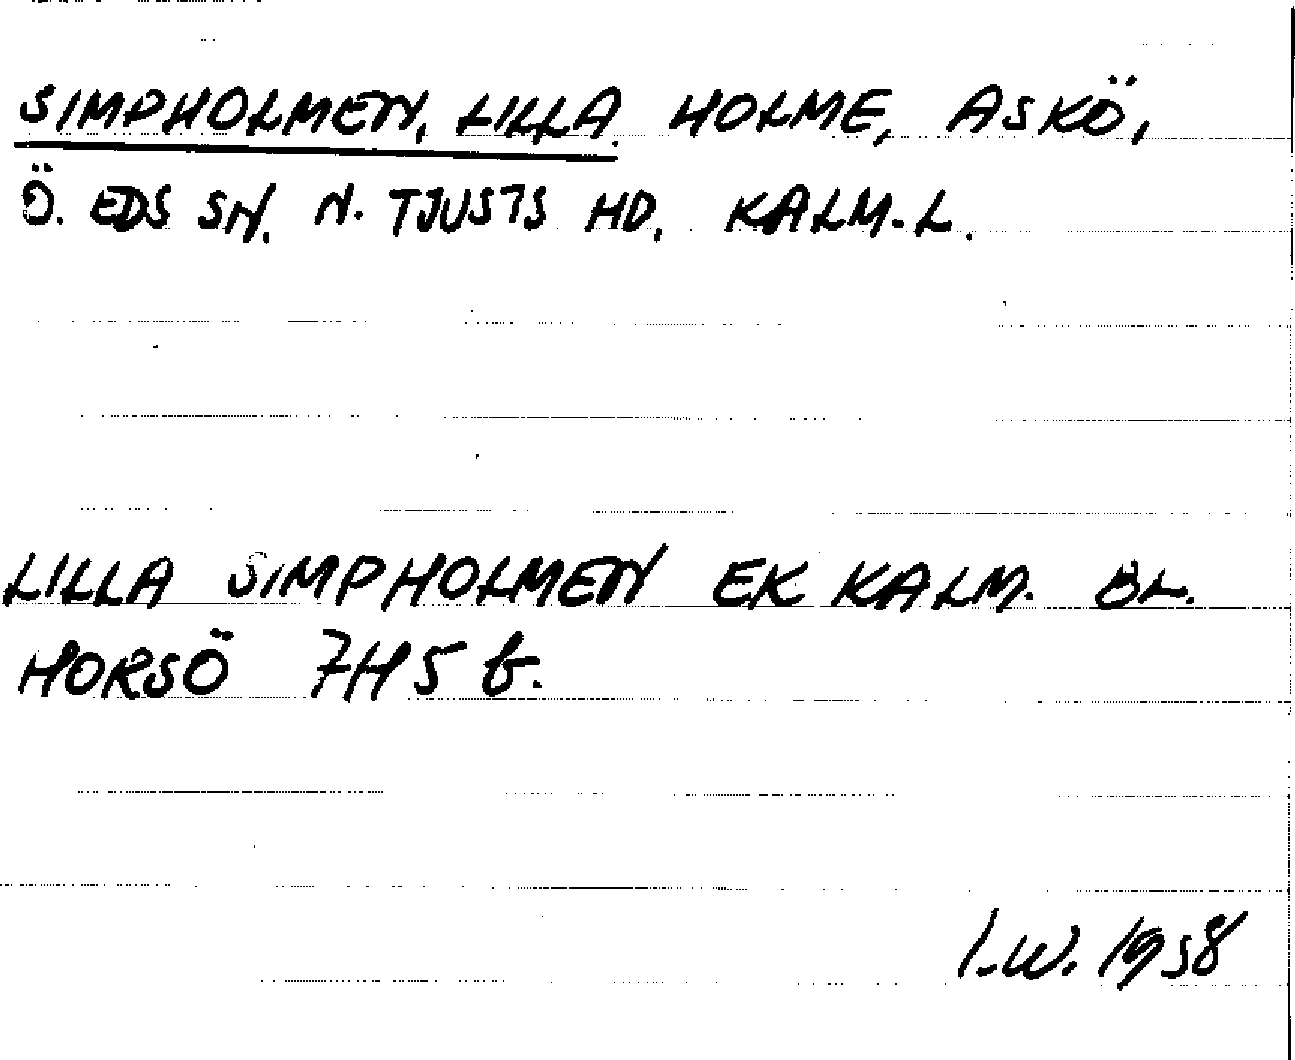 SIMPHOLMEN, LILLA. HOLME, ASKÖ,
Ö. EDS SN. N. TJUSTS HD. KALM.L.
LILLA SIMPHOLMEN EK KALM. BL.
HORSÖ 7H5 b.
I.W. 1958